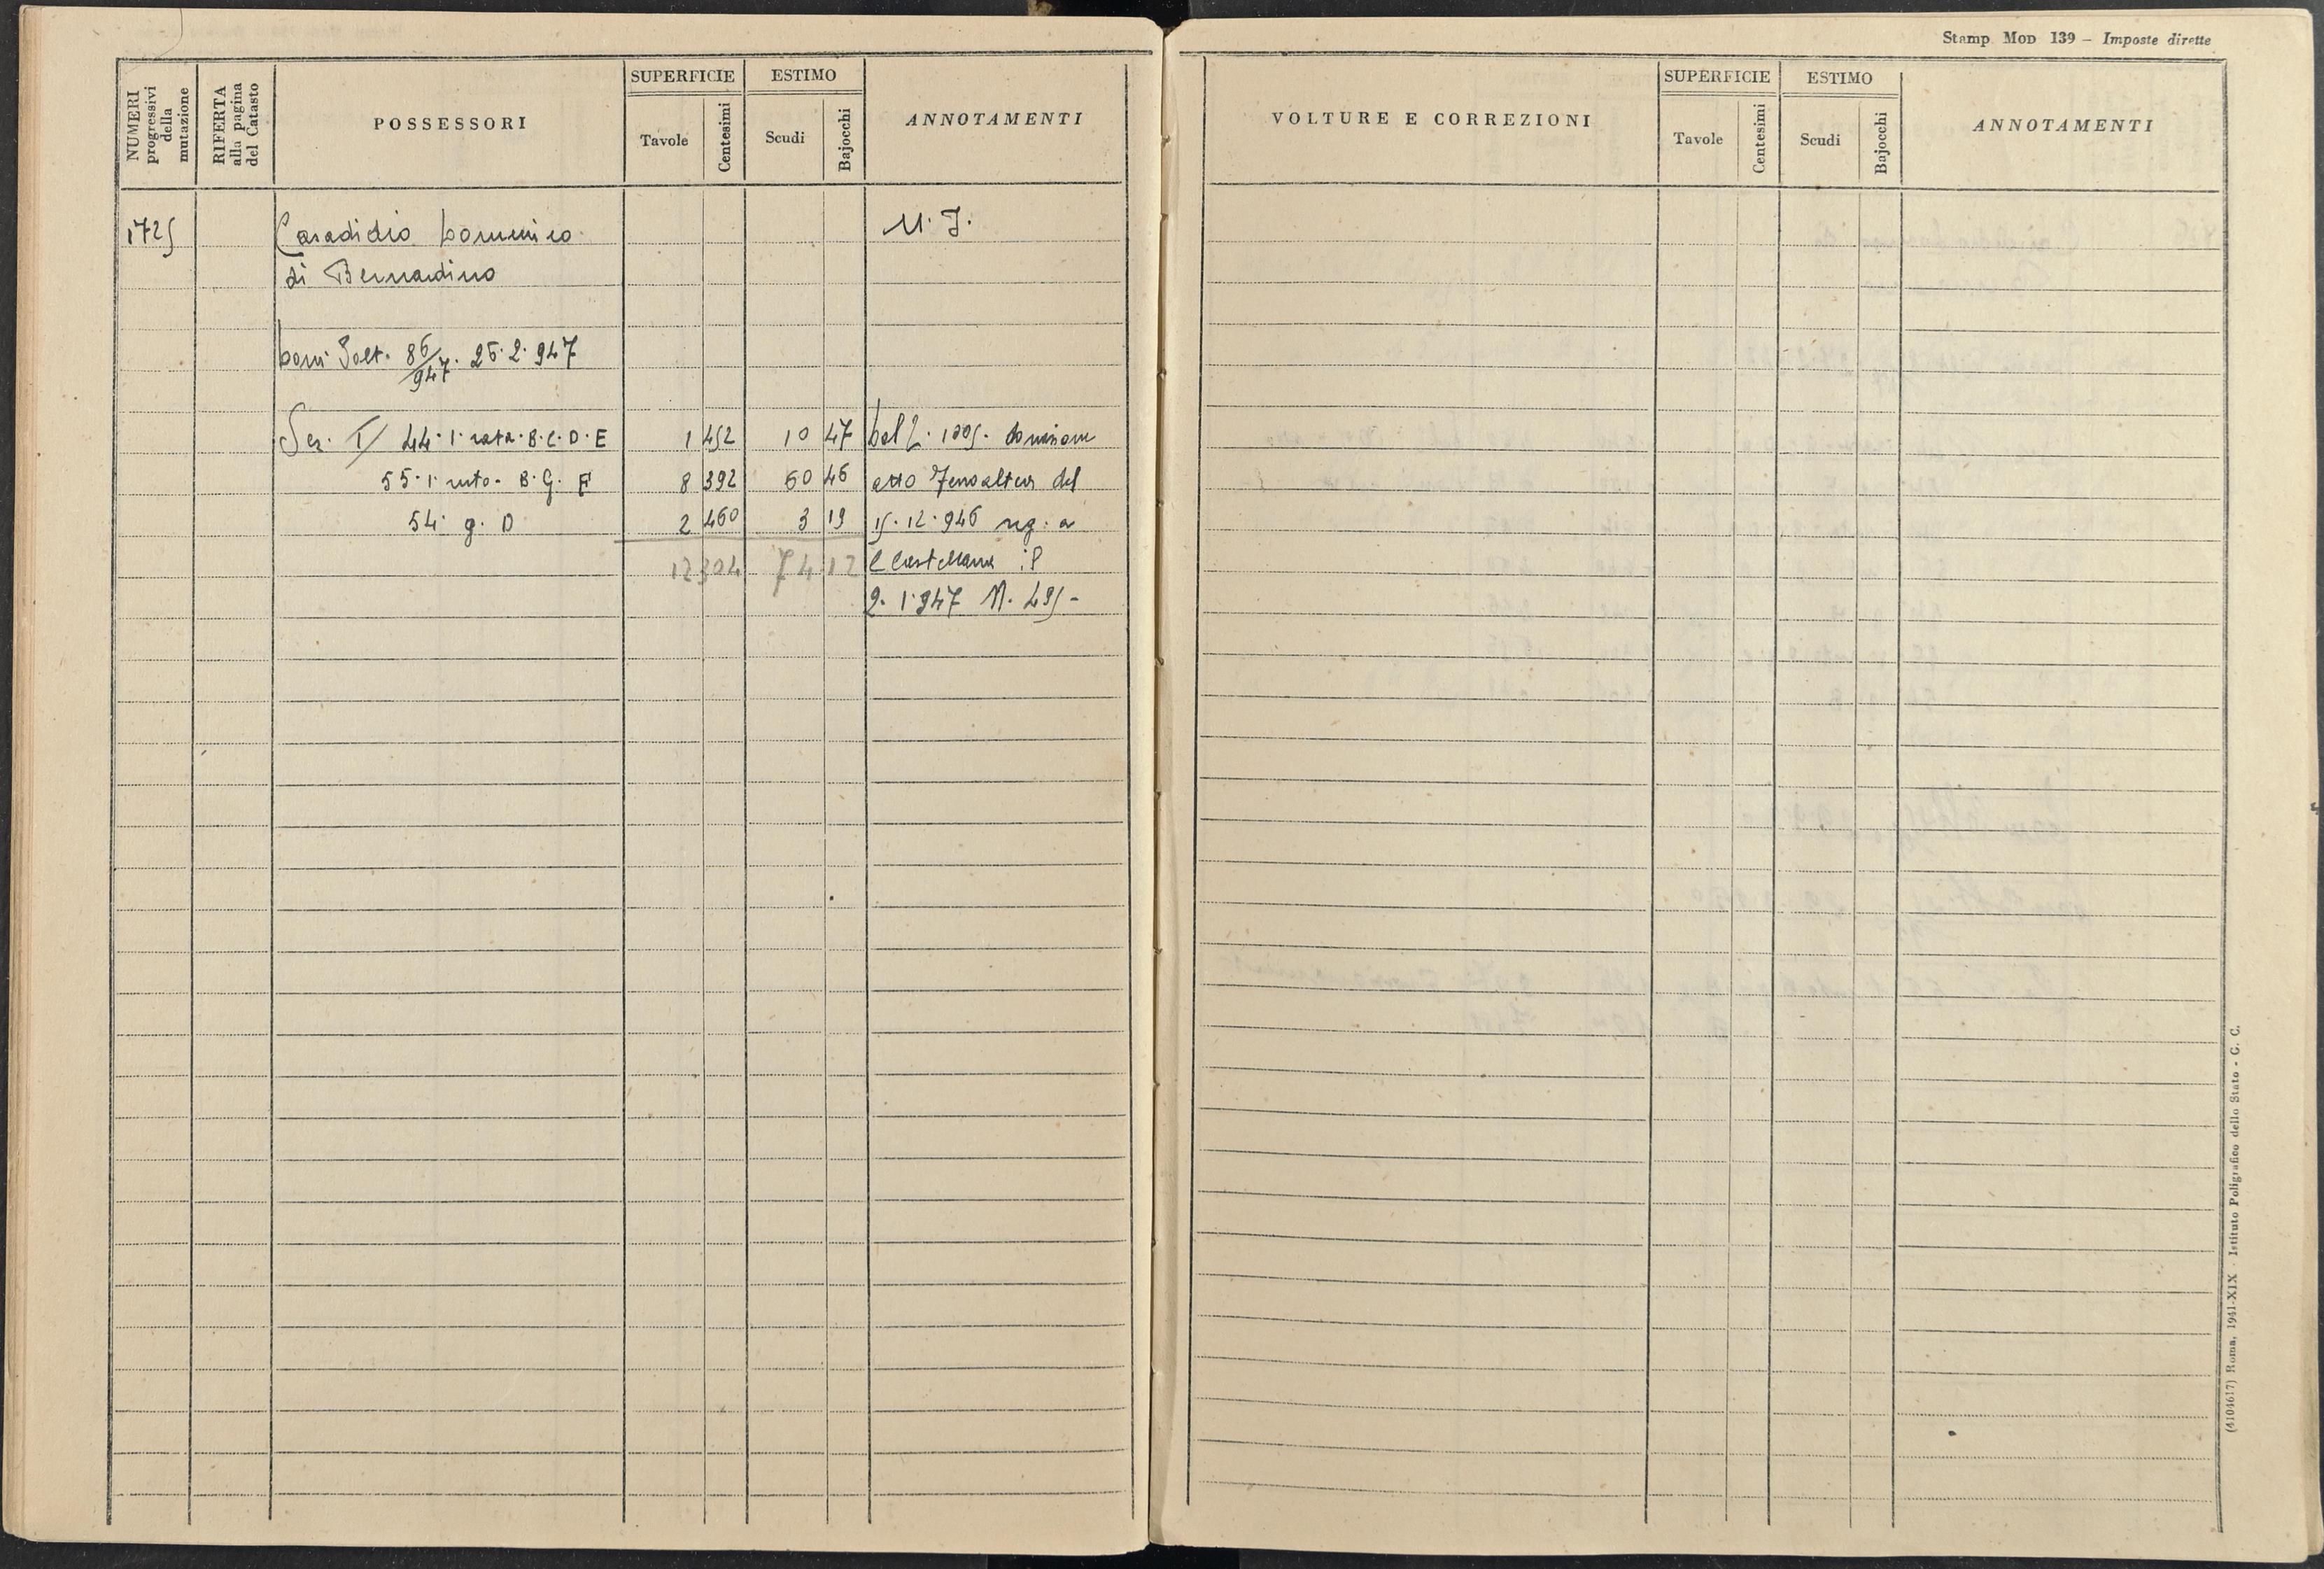 NUMERI progressivi della mutazione
RIFERTA alla pagina del Catasto
POSSESSORI
SUPERFICIE
Tavole
Centesimi
ESTIMO
Scudi
Bajocchi
ANNOTAMENTI
1725
Casadidio Domenico
di Bernardino
M. I.
Dom. Volt. 86/947. 25.2.947
Sez. I/ 44.1. rata. B.C.D.E 1 452 10 47
55.1. rata. B.G.F 8 392 60 46
54. g. D 2 460 3 19
12304 74 12
Dal 1205. Donazione
atto Fenoaltea del
15.12.946 reg. a
C Castellana il
2.1.947 N. 495-
Stamp. Mod 139 – Imposte dirette
VOLTURE E CORREZIONI
SUPERFICIE
Tavole
Centesimi
ESTIMO
Scudi
Bajocchi
ANNOTAMENTI
(4104617) Roma, 1941-XIX - Istituto Poligrafico dello Stato - G. C.